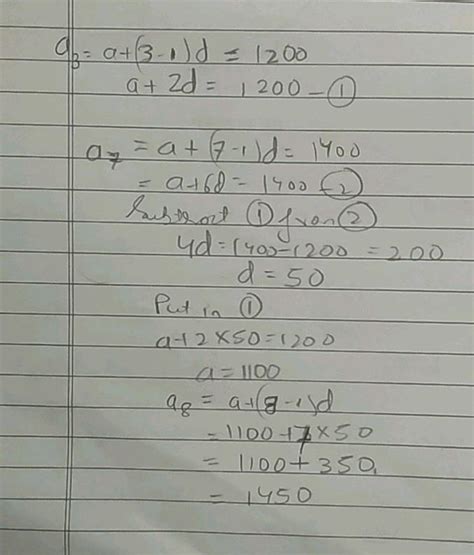 a₃ = a+(3-1)d = 1200
a+2d = 1200 - ①
a₇ = a+(7-1)d = 1400
= a+6d = 1400 - ②
Subtract ① from ②
4d = 1400-1200 = 200
d = 50
Put in ①
a+2×50=1200
a=1100
a₈ = a+(8-1)d
= 1100+7×50
= 1100+350
= 1450